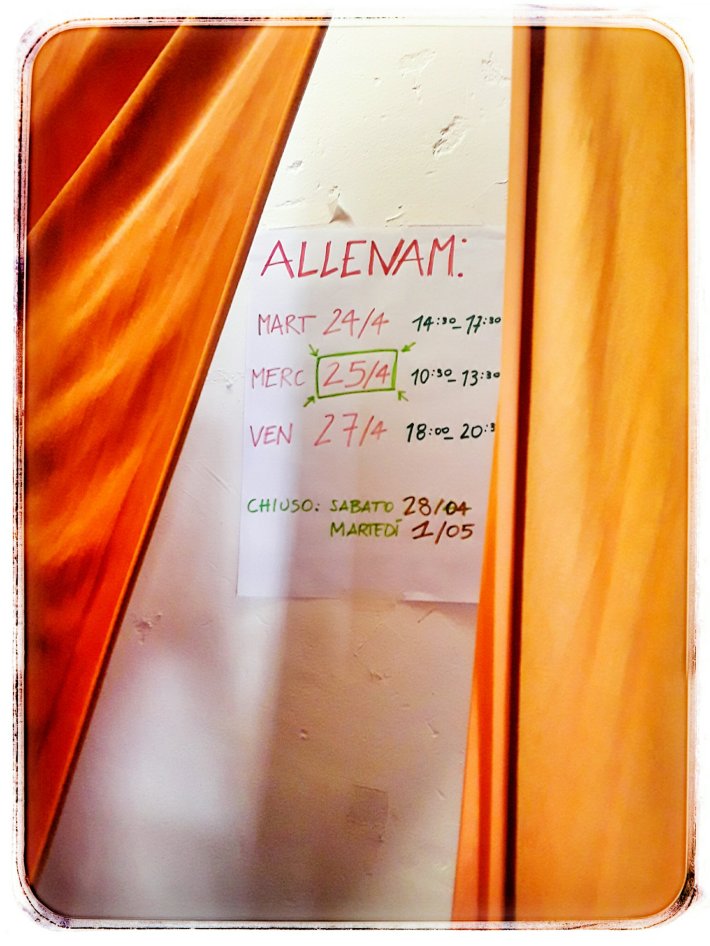 ALLENAM:
MART 24/4 14:30-17:30
MERC 25/4 10:30-13:30
VEN 27/4 18:00-20:3
CHIUSO: SABATO 28/04
MARTEDÍ 1/05